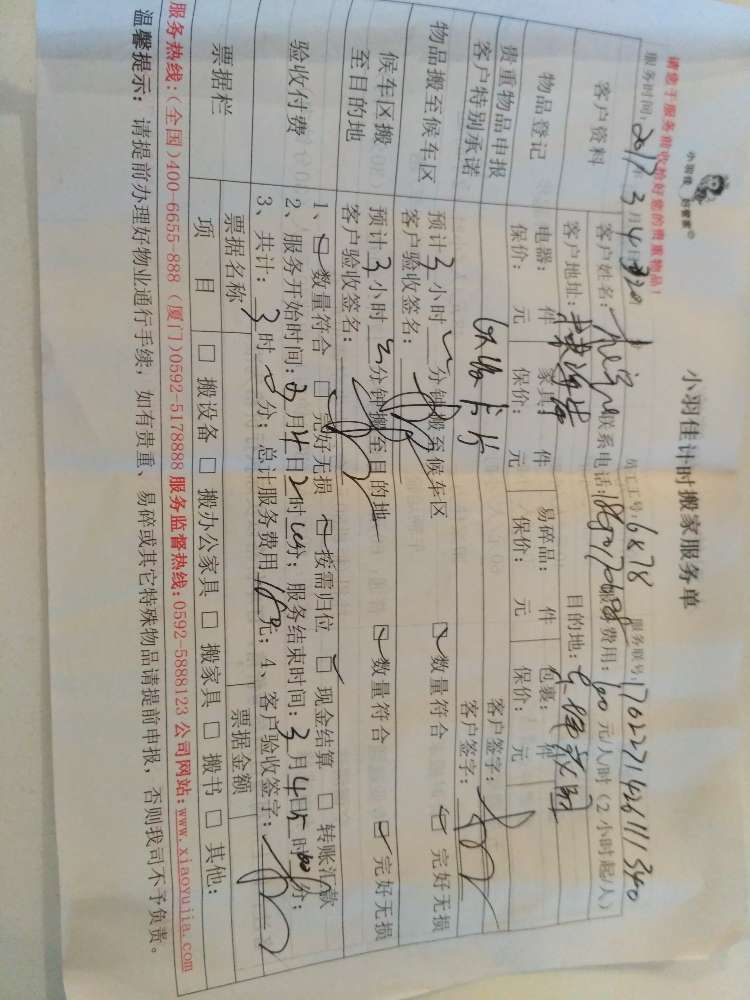 请您于服务前收拾好您的贵重物品!
小羽佳 好管家
小羽佳计时搬家服务单
服务时间: 2017年3月4日 员工工号: 6878 服务联号: 170227142611340
客户资料 客户姓名: 联系电话: 服务费用: 元/人/时 (2小时起/人)
客户地址: 目的地:
物品登记 电器: 件 家具: 件 易碎品: 件 包裹: 件
保价: 元 保价: 元 保价: 元 保价: 元
贵重物品申报 客户签字:
客户特别承诺 客户签字:
物品搬至候车区 预计3小时 分钟搬至候车区 □数量符合 □完好无损
客户验收签名:
候车区搬至目的地 预计3小时 分钟搬至目的地 □数量符合 □完好无损
客户验收签名:
验收付费 1、□数量符合 □完好无损 □按需归位 □现金结算 □转账汇款
2、服务开始时间: 3月4日2时 分; 服务结束时间: 3月4日5时00分;
3、共计: 3时 分; 总计服务费用 元; 4、客户验收签字:
票据栏 票据名称 票据金额
项目 □搬设备 □搬办公家具 □搬家具 □搬书 □其他:
服务热线:(全国)400-6655-888 (厦门)0592-5178888 服务监督热线:0592-5888123 公司网站:www.xiaoyujia.com
温馨提示: 请提前办理好物业通行手续, 如有贵重、易碎或其它特殊物品请提前申报, 否则我司不予负责。